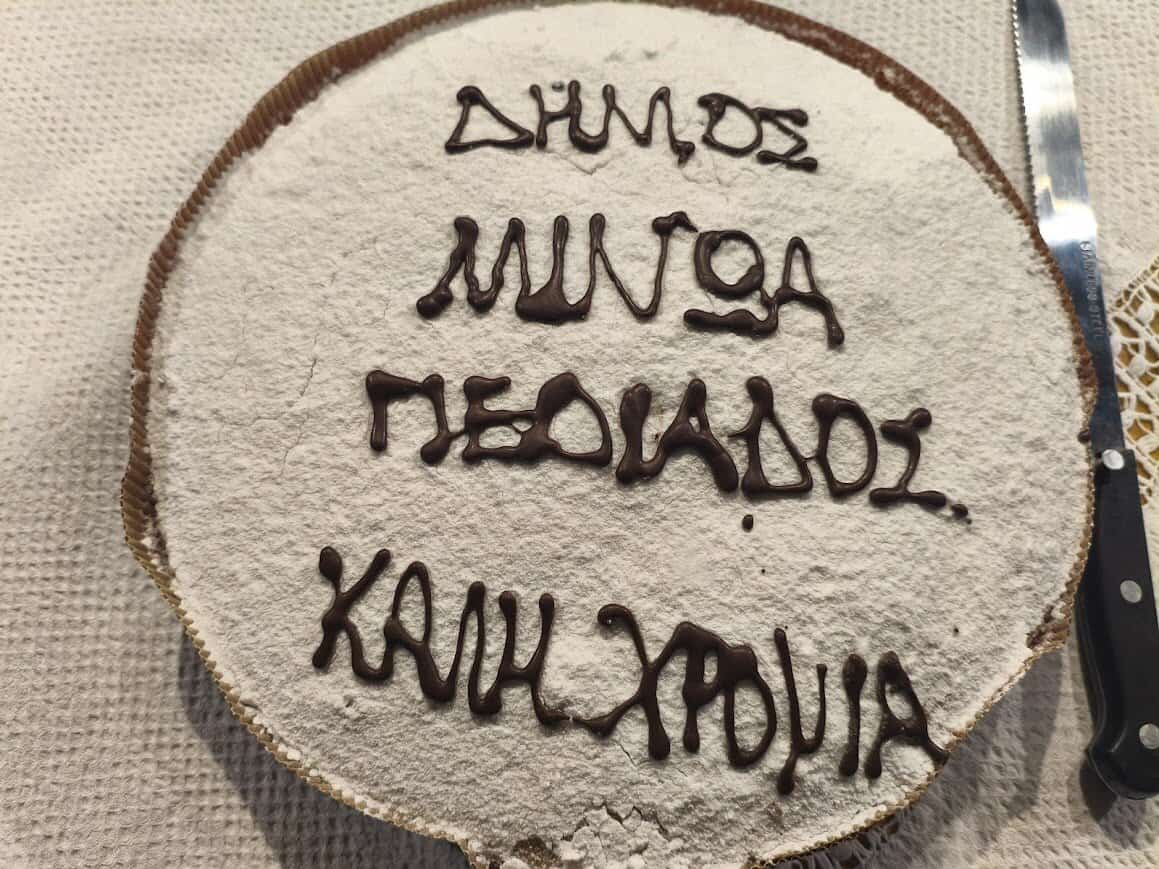 ΔΗΜΟΣ
ΜΙΝΩΑ
ΠΕΔΙΑΔΟΣ
ΚΑΛΗ ΧΡΟΝΙΑ